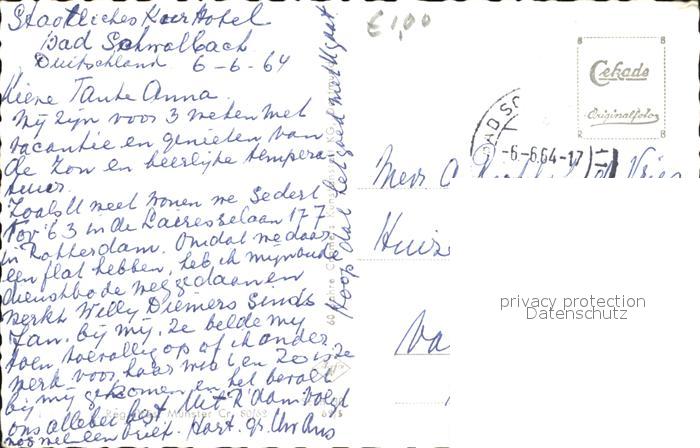 Staatliches Kur Hotel
Bad Schwalbach
Duitschland 6-6-64
Lieve Tante Anna.
Wij zijn voor 3 weken met
vacantie en genieten van
de zon en heerlijke tempera
tuur.
Zoals U weet wonen we sedert
Nov '63 in de Lairesselaan 177
in Rotterdam. Omdat we daar
een flat hebben, heb ik mijn oude
dienstbode weggedaan en
werkt Willy Diemers sinds
Jan. bij mij. Ze belde mij
toen toevallig op of ik ander
werk voor haar wist en zo is ze
bij mij gekomen en het bevalt
ons allebei best. Uit R'dam volgt
nog wel een brief. Hart. gr. Uw Ans
Hoop dat het goed met U gaat
€1,00
Cekade
Originalfoto
BAD SC
-6.-6.64-17
Mevr
Vries
Huize
Va
privacy protection
Datenschutz
Münster Cr. 80/62